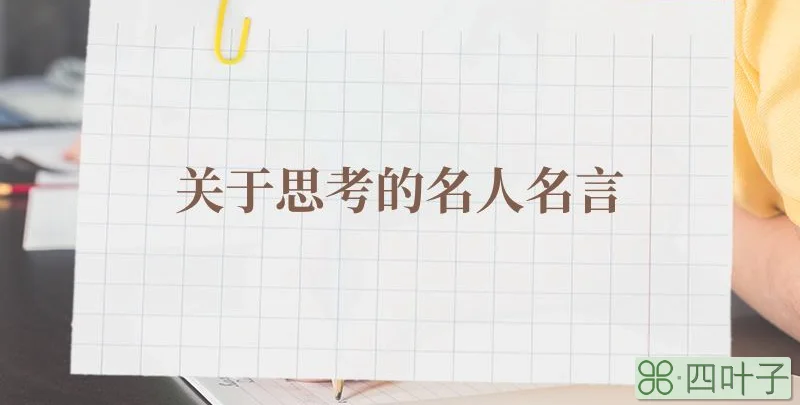 关于思考的名人名言
四叶子